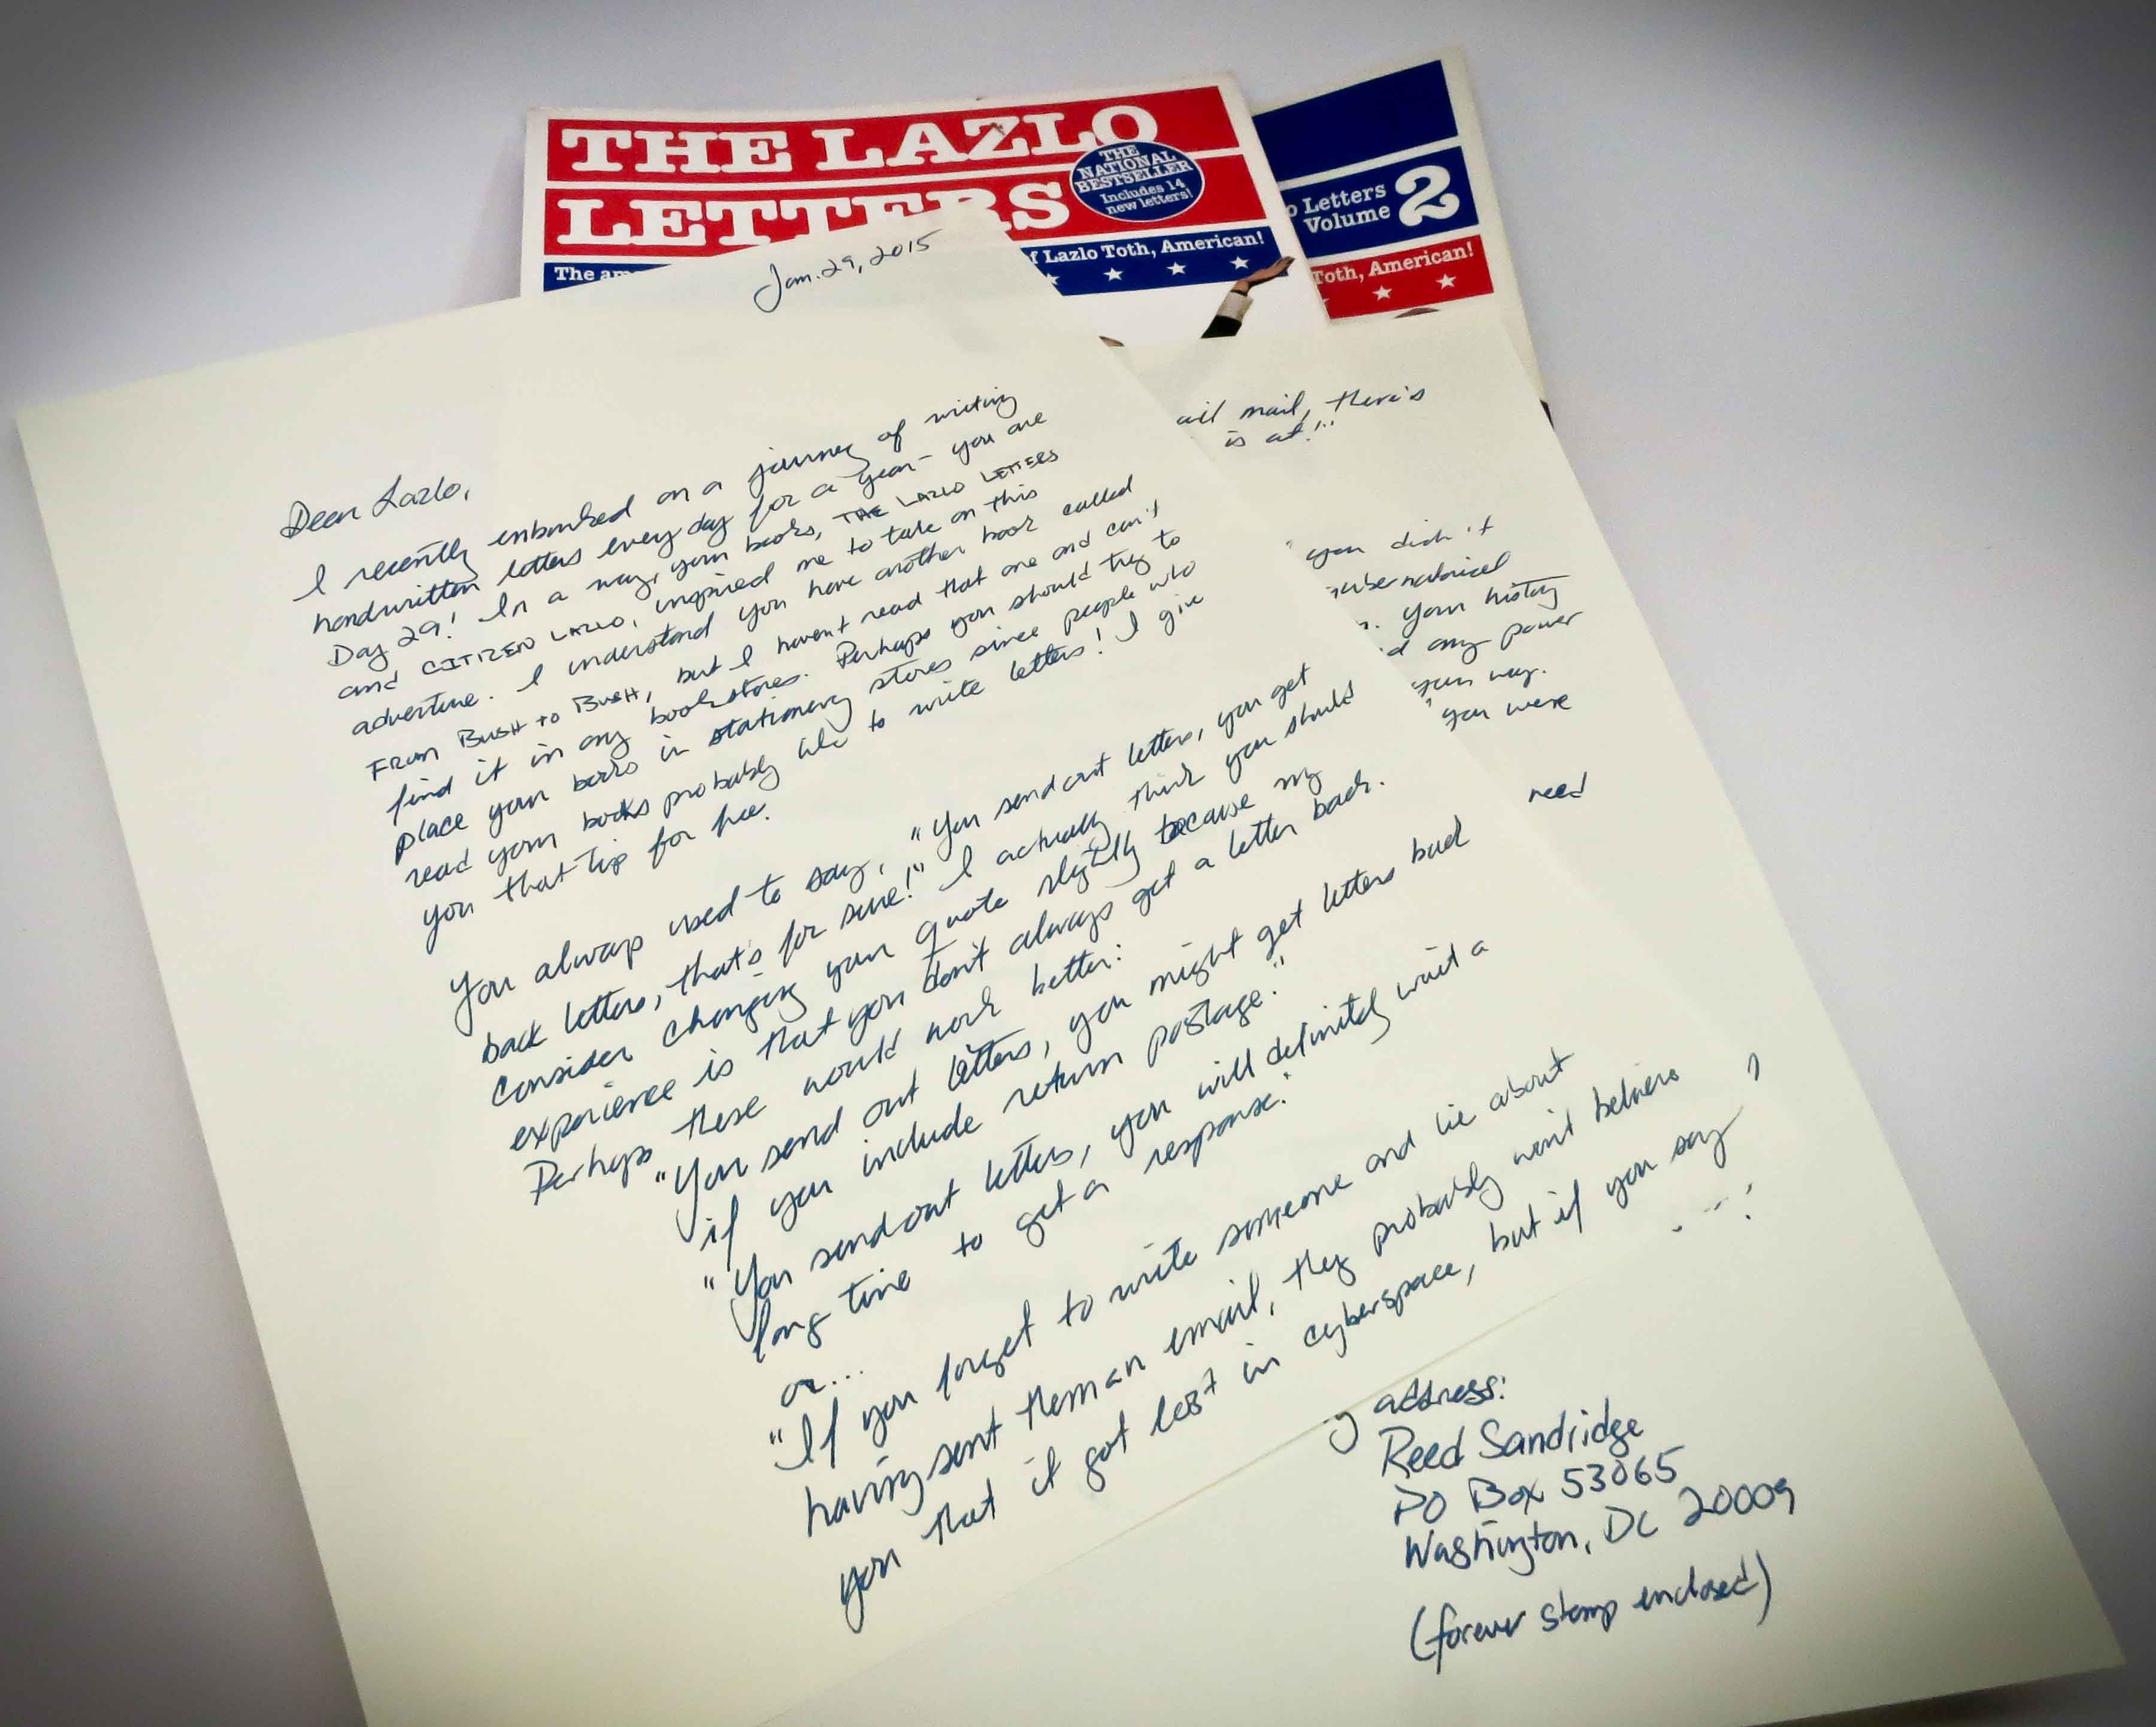 THE LAZLO
LETTERS
THE
NATIONAL
BESTSELLER
Includes 14
new letters!
The
f Lazlo Toth, American!
Letters
Volume 2
Toth, American!
Jan. 29, 2015
Dear Lazlo,
I recently embarked on a journey of writing
handwritten letters every day for a year - you are
Day 29! In a way, your books, THE LAZLO LETTERS
and CITIZEN LAZLO, inspired me to take on this
adventure. I understand you have another book called
FROM BUSH TO BUSH, but I haven't read that one and can't
find it in any bookstores. Perhaps you should try to
place your books in stationary stores since people who
read your books probably like to write letters! I give
you that tip for free.
You always used to say, "You send out letters, you get
back letters, that's for sure!" I actually think you should
consider changing your quote slightly because my
experience is that you don't always get a letter back.
Perhaps these would work better:
"You send out letters, you might get letters back
if you include return postage."
"You send out letters, you will definitely wait a
long time to get a response."
or...
"If you forget to write someone and lie about
having sent them an email, they probably won't believe
you that it got lost in cyberspace, but if you say
ail mail, there's
is at!"
you didn't
gubernatorial
your history
any power
your way.
you were
need
address:
Reed Sandridge
PO Box 53065
Washington, DC 20009
(forever stamp enclosed)